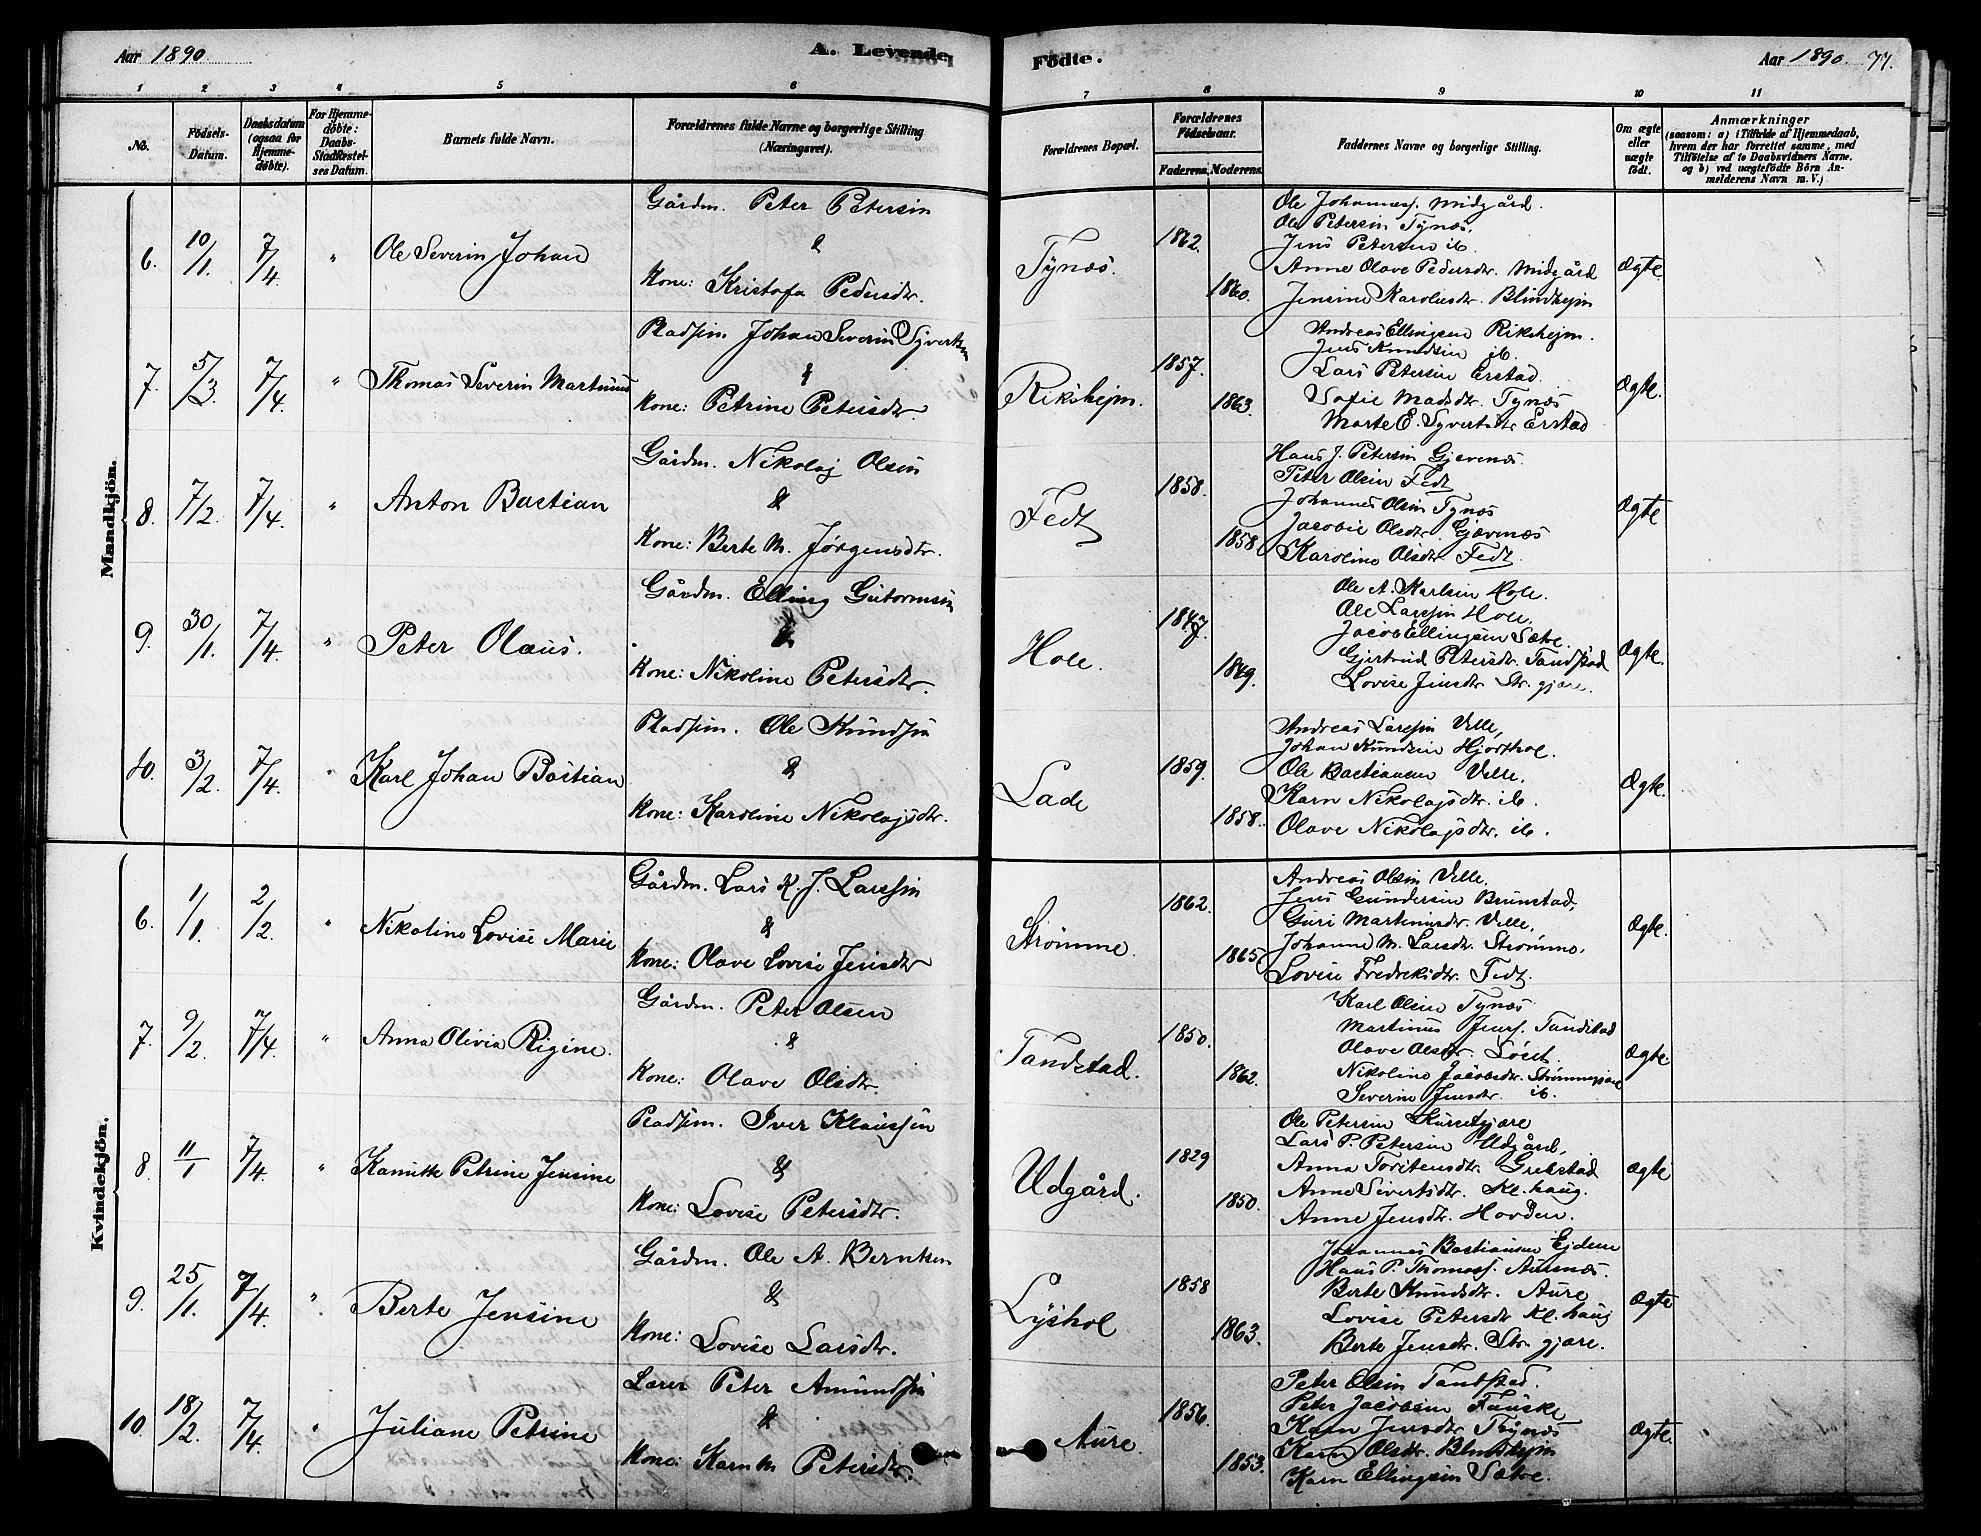 Aar 1890
A. Levende
Födte.
Aar 1890. 77.
1 2 3 4 5 6 7 8 9 10 11
No.
Födsels-
Datum.
Daabsdatum
(ogsaa for
Hjemme-
døbte).
For Hjemme-
døbte:
Daabs-
Stadfæstel-
ses Datum.
Barnets fulde Navn.
Forældrenes fulde Navne og borgerlige Stilling
(Næringsvei).
Forældrenes Bopæl.
Forældrenes
Födselsaar.
Faderens. Moderens.
Faddernes Navne og borgerlige Stilling.
Om ægte
eller
uægte
födt.
Anmærkninger
(saasom: a) i Tilfælde af Hjemmedaab,
hvem der har forrettet samme, med
Tilföielse af to Daabsvidners Navne,
og b) ved uægtefödte Börn An-
melderens Navn m. V.)
Mandkjön.
6. 10/1 7/4 " Ole Severin Johan
Gårdm. Peter Petersen
&
Kone: Kristofa Pedersdtr.
Tynæs. 1862. 1860.
Ole Johanness. Midgård.
Ole Petersen Tynæs.
Jens Petersen ib.
Anne Olave Pedersdtr. Midgård
Jensine Karolusdtr. Blindhejm
Ægte.
7. 5/3 7/4. " Thomas Severin Martinus
Pladsm. Johan Severin Syvertsen
&
Kone: Petrine Petersdtr
Rikshejm. 1857. 1863.
Andreas Ellingsen Rikshejm.
Jens Knudsen ib.
Lars Petersen Erstad.
Sofie Madsdtr. Tynæs
Marte E. Syvertsdtr Erstad
Ægte.
8. 7/2. 7/4. " Anton Bastian
Gårdm. Nikolaj Olsen
&
Kone: Berte M. Jørgensdtr.
Fedt 1858. 1858.
Hans J. Petersen Gjævenæs.
Peter Olsen Fedt
Johannes Olsen Tynæs
Jacobie Olsdtr. Gjævenæs
Karoline Olsdtr. Fedt.
Ægte
9. 30/1. 7/4. " Peter Olaus.
Gårdm. Elling Gutormsen
&
Kone: Nikoline Petersdtr.
Hole. 1847. 1849.
Ole A. Karlsen Hole.
Ole Larssen Hole.
Jacob Ellingsen Sætre.
Gjertrud Petersdtr. Tandstad
Lovise Jensdtr. Str. gjære.
Ægte.
10. 3/2. 7/4. " Karl Johan Bastian
Pladsm. Ole Knudsen
&
Kone: Karoline Nikolajsdtr.
Lade 1859. 1858.
Andreas Larssen Velle,
Johan Knudsen Hjorthol.
Ole Bastiansen Velle.
Karn Nikolajsdtr. ib.
Olave Nikolajsdtr. ib.
Ægte.
Kvindekjön.
6. 1/1. 2/2. " Nikoline Lovise Marie
Gårdm. Lars K. J. Larssen
&
Kone: Olave Lovise Jensdtr
Strømme. 1862. 1865
Andreas Olsen Velle.
Jens Gundersen Brunstad,
Guri Martinusdtr. Velle.
Johanne M. Larsdtr. Strømme.
Lovise Fredreksdtr. Fedt.
Ægte.
7. 9/2. 7/4. " Anna Olivia Rigine.
Gårdm. Peter Olsen
&
Kone: Olave Olsdtr.
Tandstad. 1850. 1862.
Karl Olsen Tynæs
Martinus Jenss. Tandstad
Olave Olsdtr. Løset.
Nikoline Jacobsdtr. Strømmegjære
Severine Jensdtr. ib.
Ægte.
8. 11/1 7/4. " Petrine Jensine
Pladsm. Iver Klaussen
&
Kone: Lovise Petersdtr.
Udgård. 1829 1850.
Ole Petersen
Lars P. Petersen Udgård,
Anna Torstensdtr. Grebstad
Anne Sivertsdtr. Kl. haug.
Anne Jensdtr. Hovden.
Ægte
9. 25/1. 7/4. " Berte Jensine
Gårdm. Ole A. Berntsen
&
Kone: Lovise Larsdtr.
Lyshol 1858 1863.
Johannes Bastiansen Ejdem
Hans P. Thomass. Aursnæs.
Berte Knudsdtr. Aure
Lovise Petersdtr Kl. haug
Berte Jensdtr. Str. gjære.
Ægte
10. 18/2. 7/4. " Juliane Petrine
Lærer Peter Amundsen
&
Kone: Karn M. Petersdtr.
Aure. 1856. 1853.
Peter Olsen Tandstad.
Peter Jacobsen Fauske
Karn Jensdtr Tynæs
Karn Olsdtr. Blindhejm
Karn Ellingsen Sætre.
Ægte.